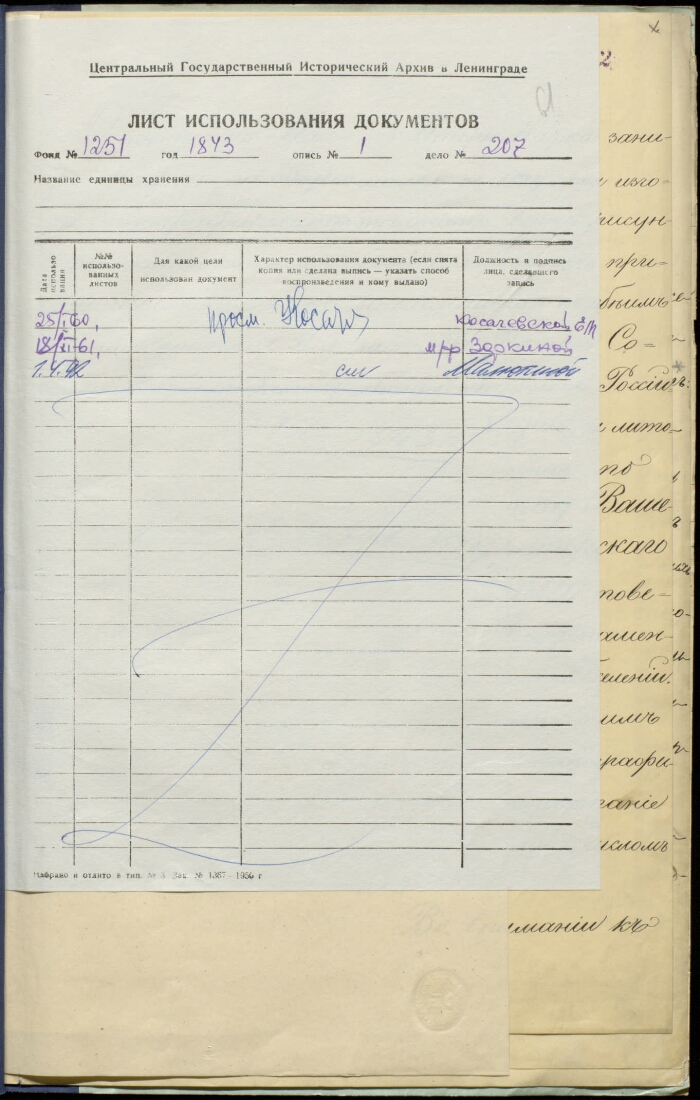 Центральный Государственный Исторический Архив в Ленинграде
ЛИСТ ИСПОЛЬЗОВАНИЯ ДОКУМЕНТОВ
Фонд № 1251 год 1843 опись № 1 дело № 207
Название единицы хранения
Дата использования
№№ использо-
ванных
листов
Для какой цели
использован документ
Характер использования документа (если снята
копия или сделана выпись — указать способ
воспроизведения и кому выдано)
Должность и подпись
лица, сделавшего
запись
25/I-60, просм. Косач Косачевской Е.М
18/XI-61, Зоркиной
см
Набрано и отлито в тип. № 3 Зак. № 1367 - 1956 г
зани-
изго-
рисун
при-
Со=
Россіи
лито-
по
Ваше-
скаго
тове-
амен-
еленіи.
имъ
рафи-
аніе
кломъ
иманіи къ